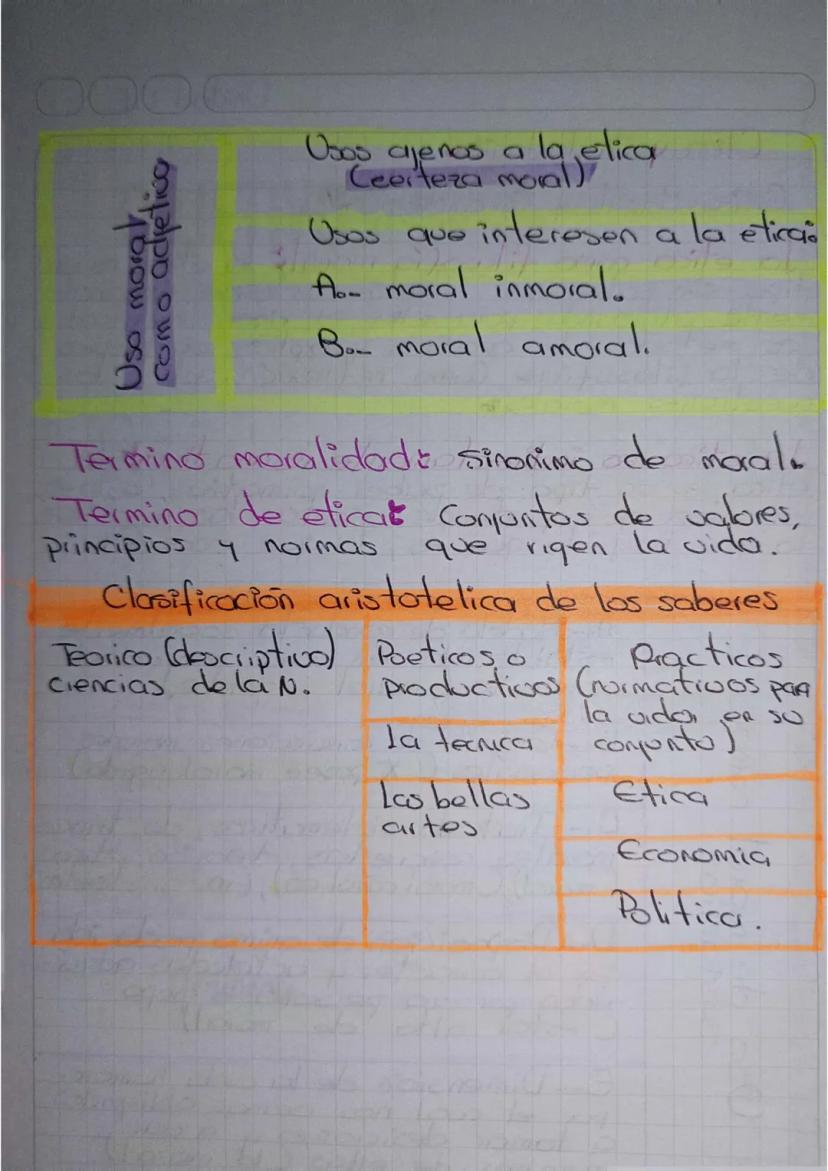 Uso moral
como adjetivo
Usos ajenos a la etica
(ceerteza moral)
Usos que interesen a la etica:
A.- moral inmoral.
B.- moral amoral.
Termino moralidad: sinonimo de moral.
Termino de etica: Conjuntos de valores,
principios y normas que rigen la vida.
Clasificación aristotelica de los saberes
Teorico (descriptivo)
ciencias de la N.
Poeticos o
productivos
la tecnica
Las bellas
artes
Practicos
(normativos para
la vida en su
conjunto)
Etica
Economia
Politica.